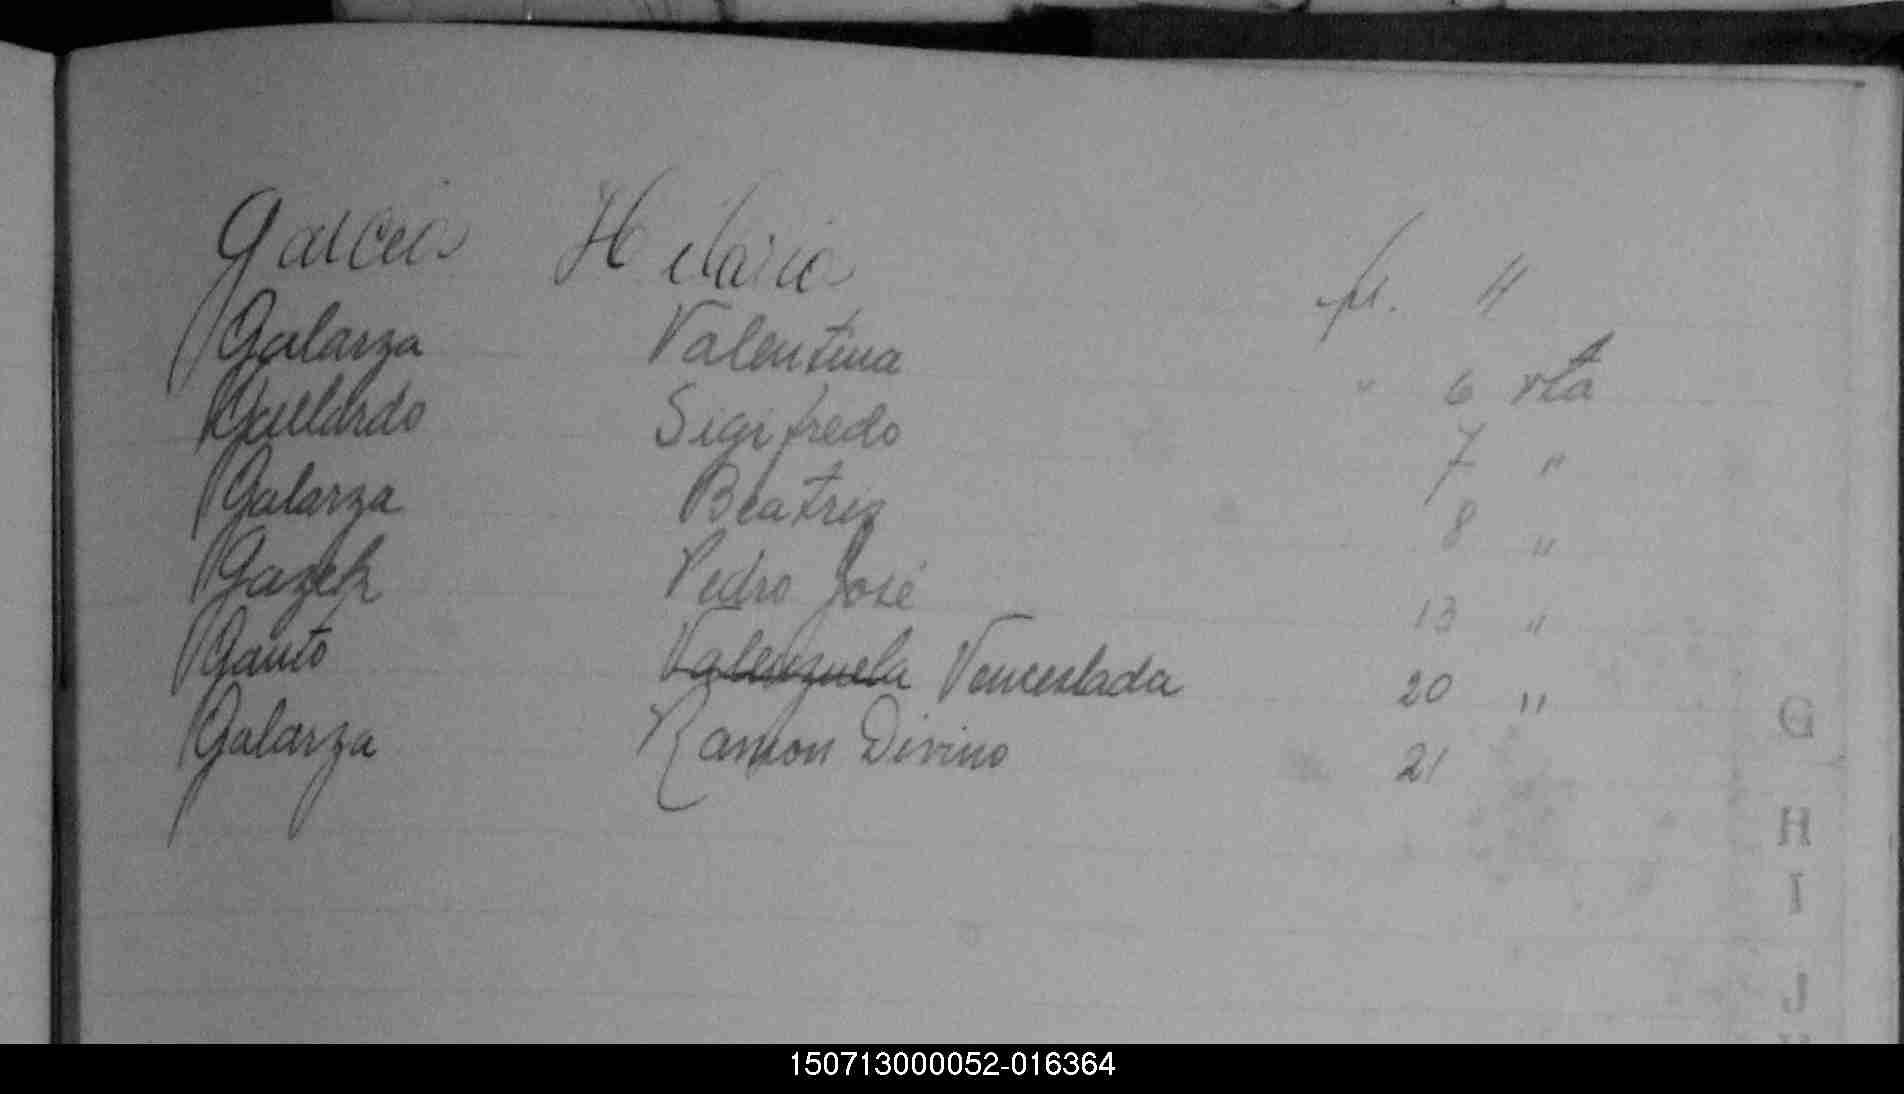 Garcia Hilaria fl. 4
Galarza Valentina " 6 vta
Gallardo Sigifredo 7 "
Galarza Beatriz 8 "
Gazek Pedro José 13 "
Gauto Valenzuela Venceslada 20 "
Galarza Ramon Divino 21
G
H
I
J
150713000052-016364